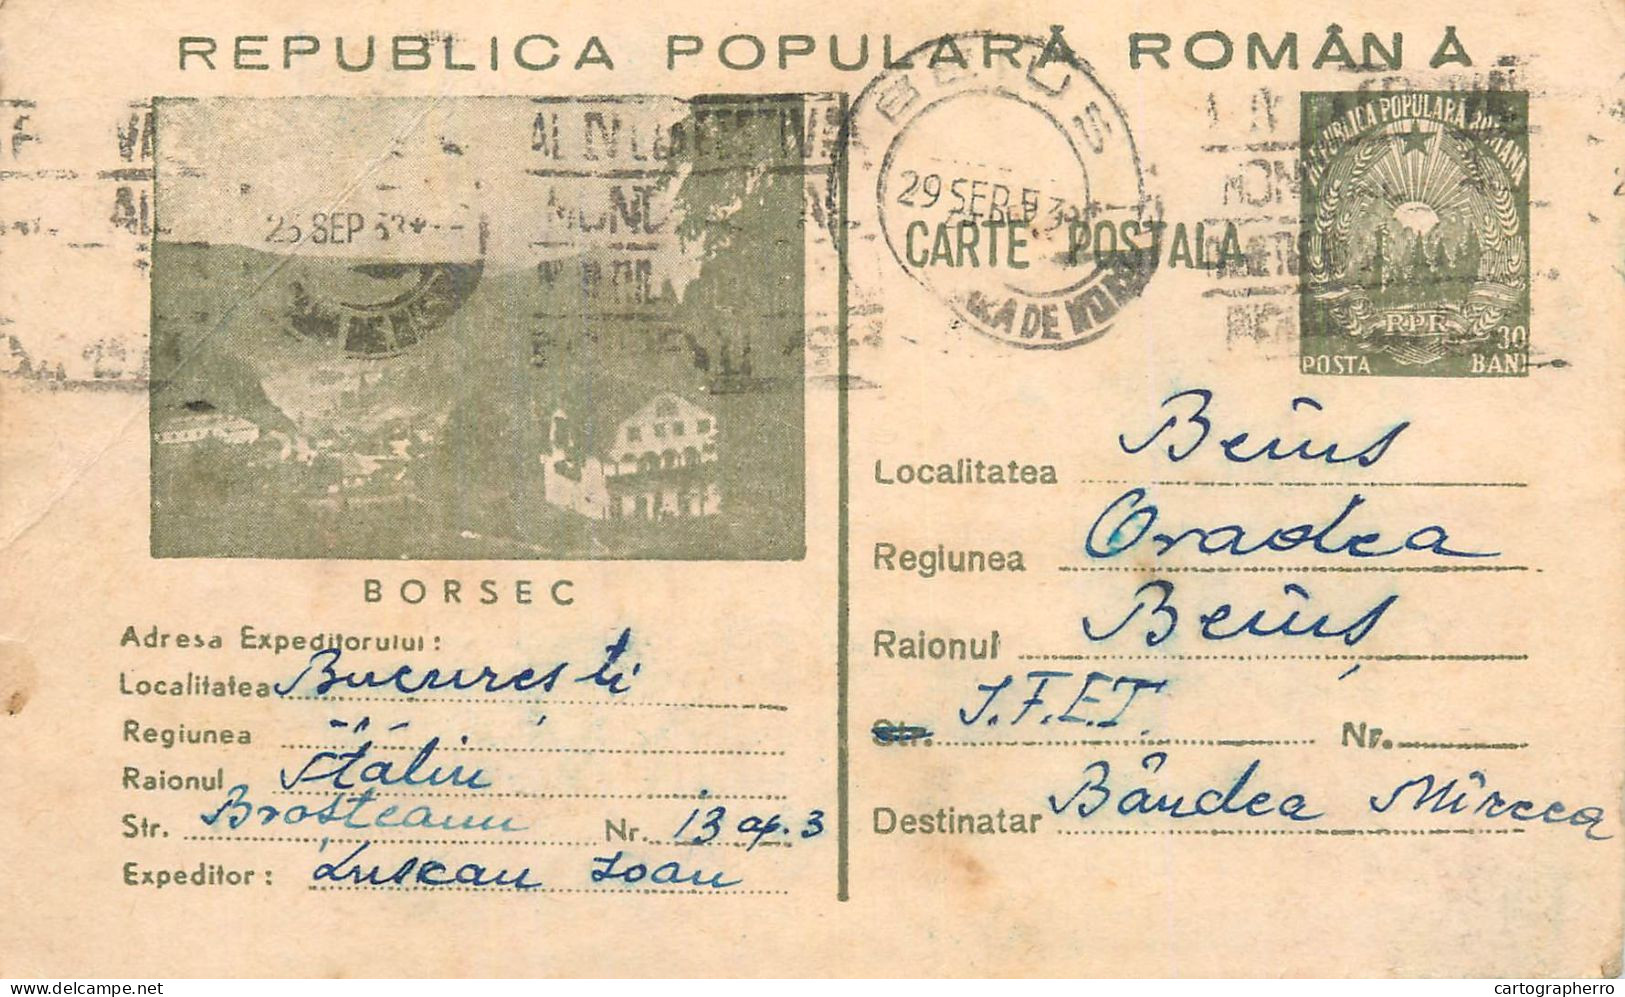 REPUBLICA POPULARĂ ROMÂNĂ
AL IV LEA FESTIV
MOND
25 SEP 53
BEIUS
29 SEP 53
CARTE POSTALA
REPUBLICA POPULARĂ ROMANA
RPR
POSTA 30 BANI
BORSEC
Adresa Expeditorului:
Localitatea Bucureşti
Regiunea
Raionul Stălin
Str. Broşteanu Nr. 13 ap. 3
Expeditor: Luscan Ioan
Localitatea Beiuş
Regiunea Oradea
Raionul Beiuş
Str. I.F.E.T. Nr.
Destinatar Bândea Mircea
delcampe.net
cartographerro